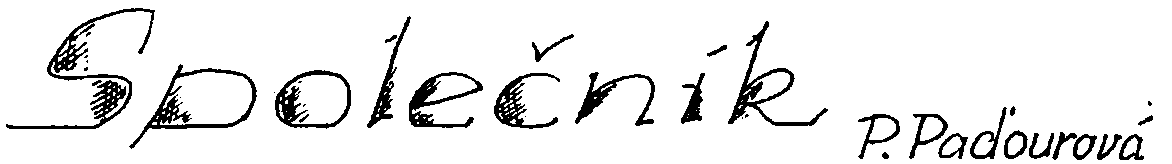 Společník
P. Paďourová